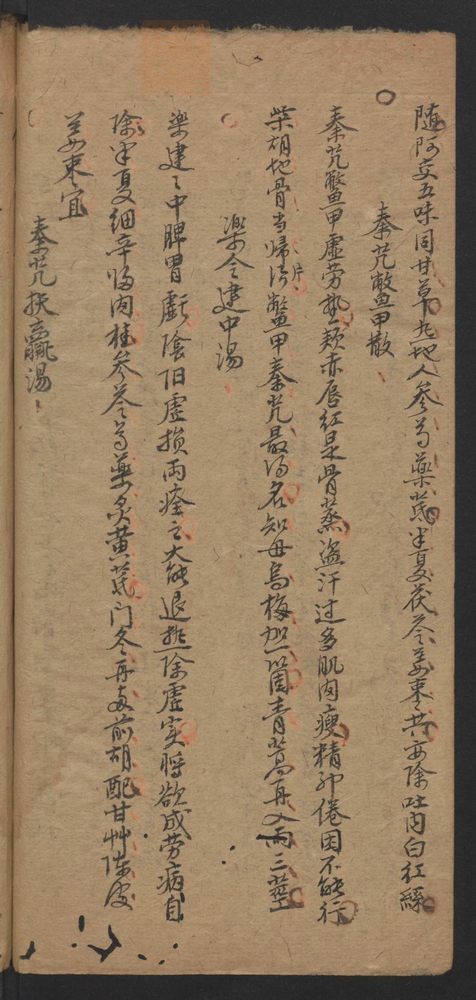 隨阿交五味同甘草九地人參芍藥芪半夏茯苓姜枣共要除吐內白紅絲
秦艽鱉甲散
秦艽鱉甲虛劳热頰赤唇紅是骨蒸盜汗过多肌肉瘦精神倦困不能行
柴胡地骨当归片鱉甲秦艽最得名知母烏梅加一箇青蒿再入两三莖
樂令建中湯
樂建之中脾胃虧陰阳虚損两痊之大能退热除虛実将欲成劳病自
除半夏细辛归肉桂参苓芍藥炙黄芪门冬再與前胡配甘艸陈皮
姜枣宜
秦艽扶羸湯